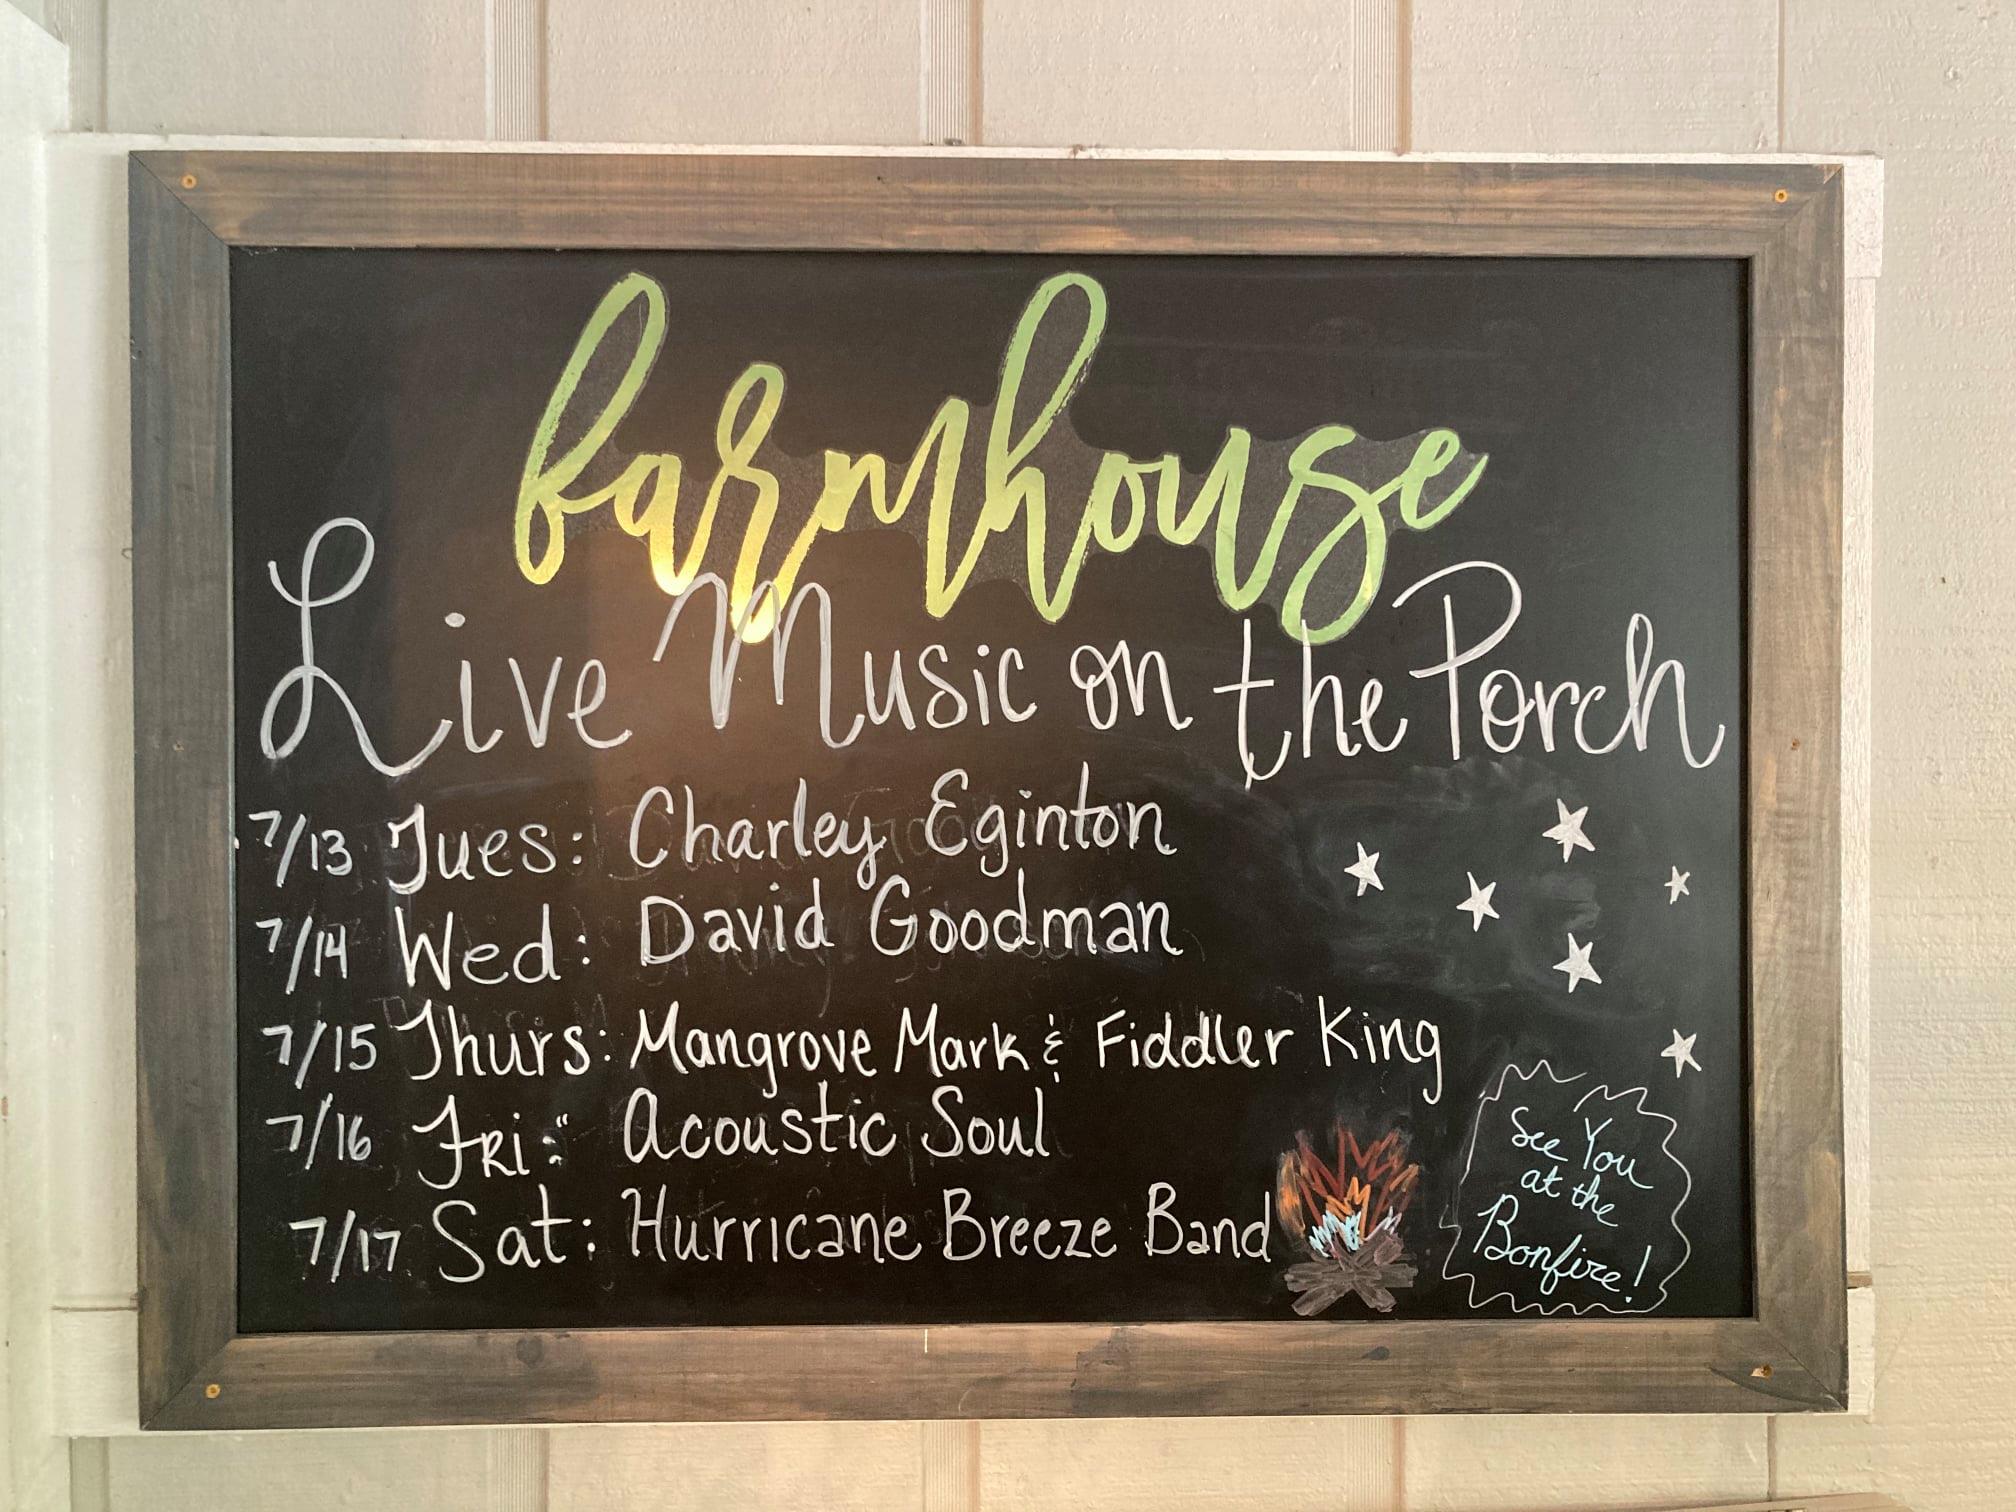 farmhouse
Live Music on the Porch
7/13 Tues: Charley Eginton
7/14 Wed: David Goodman
7/15 Thurs: Mangrove Mark & Fiddler King
7/16 Fri: Acoustic Soul
7/17 Sat: Hurricane Breeze Band
See You
at the
Bonfire!